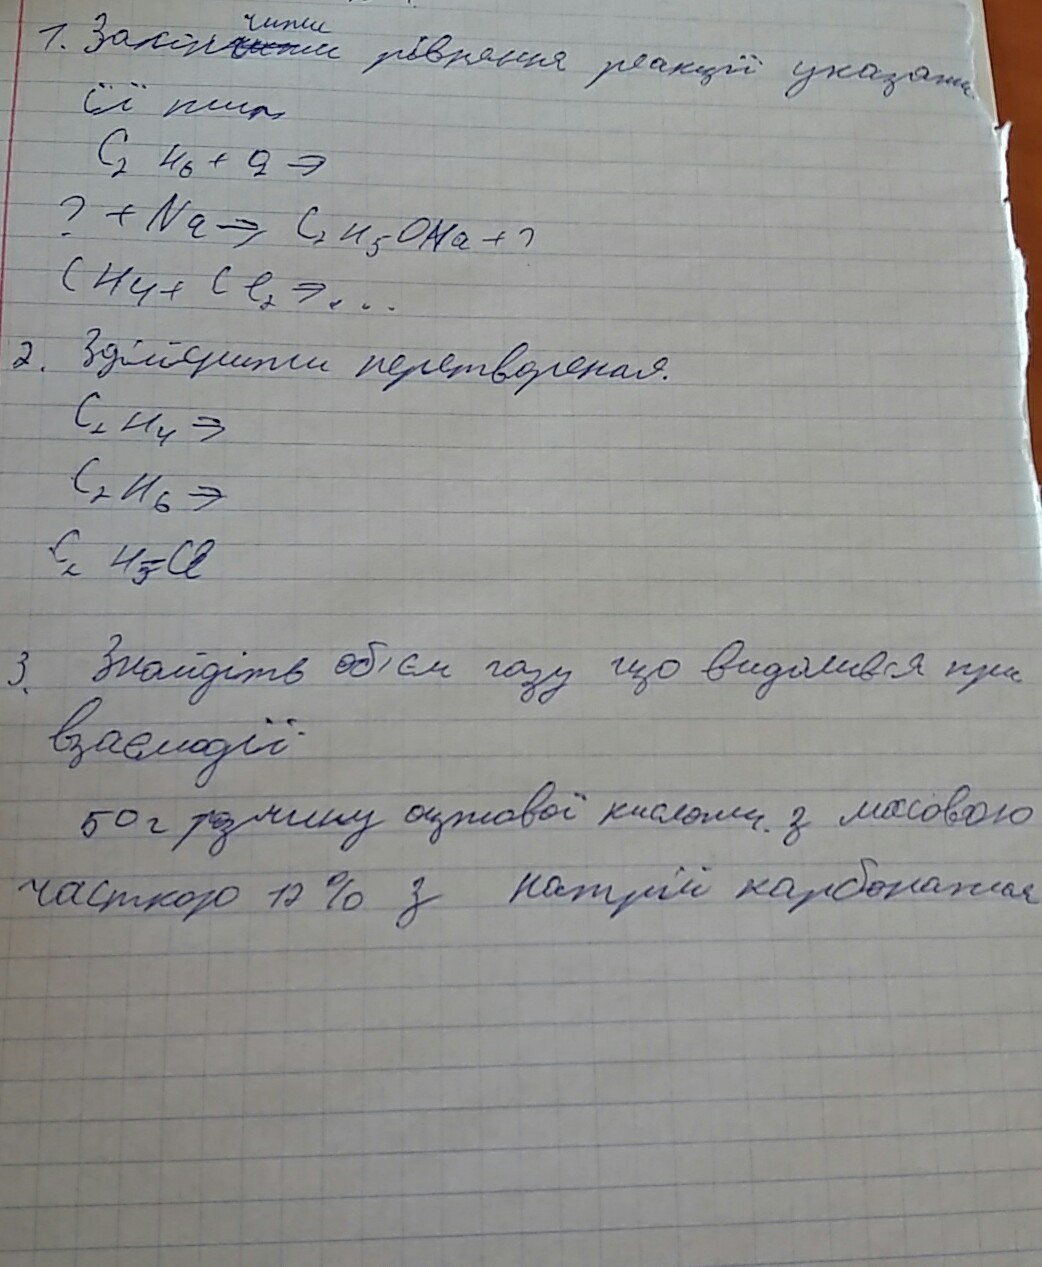 чити
1. Закін рівняння реакції указати
її тип
C₂ H₆ + O₂ ⇒
? + Na ⇒ C₂H₅ONa + ?
CH₄ + Cl₂ ⇒ ....
2. Здійснити перетворення.
C₂ H₄ ⇒
C₂ H₆ ⇒
C₂ H₅Cl
3. Знайдіть об'єм газу що виділився при
взаємодії
50 г розчину оцтової кислоти з масовою
часткою 12% з натрій карбонатом